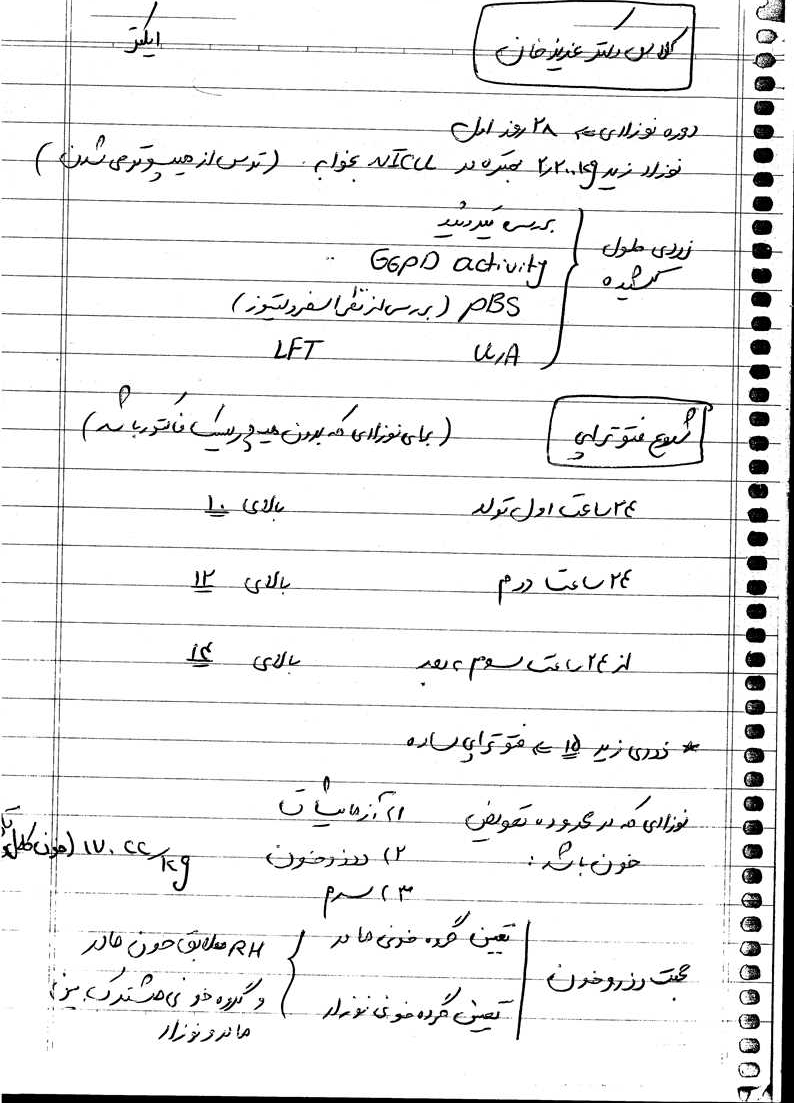 کلاس دکتر عزیزخان ایکتر
دوره نوزادی ⇐ ۲۸ روز اول
نوزاد زیر ۲٫۲۰۰kg بهتره در NICU بخوابه. (ترس از هیپوترمی شدن)
زردی طول کشیده
بررسی تیروئید
G6PD activity
PBS (بررسی از نظر اسفروسیتوز)
U/A LFT
شروع فتوتراپی (برای نوزادی که بدون هیچ ریسک فاکتور باشد)
۲۴ ساعت اول تولد بالای ۱۰
۲۴ ساعت دوم بالای ۱۲
از ۲۴ ساعت سوم به بعد بالای ۱۴
* زردی زیر ۱۵ ⇐ فتوتراپی ساده
نوزادی که در محدوده تعویض خون باشد:
۱) آزمایشات
۲) رزرو خون ۱۷۰ cc/kg (خون کامل
۳) سرم
جهت رزرو خون
تعیین گروه خونی مادر
تعیین گروه خونی نوزاد
RH مطابق خون مادر
و گروه خونی مشترک بین
مادر و نوزاد